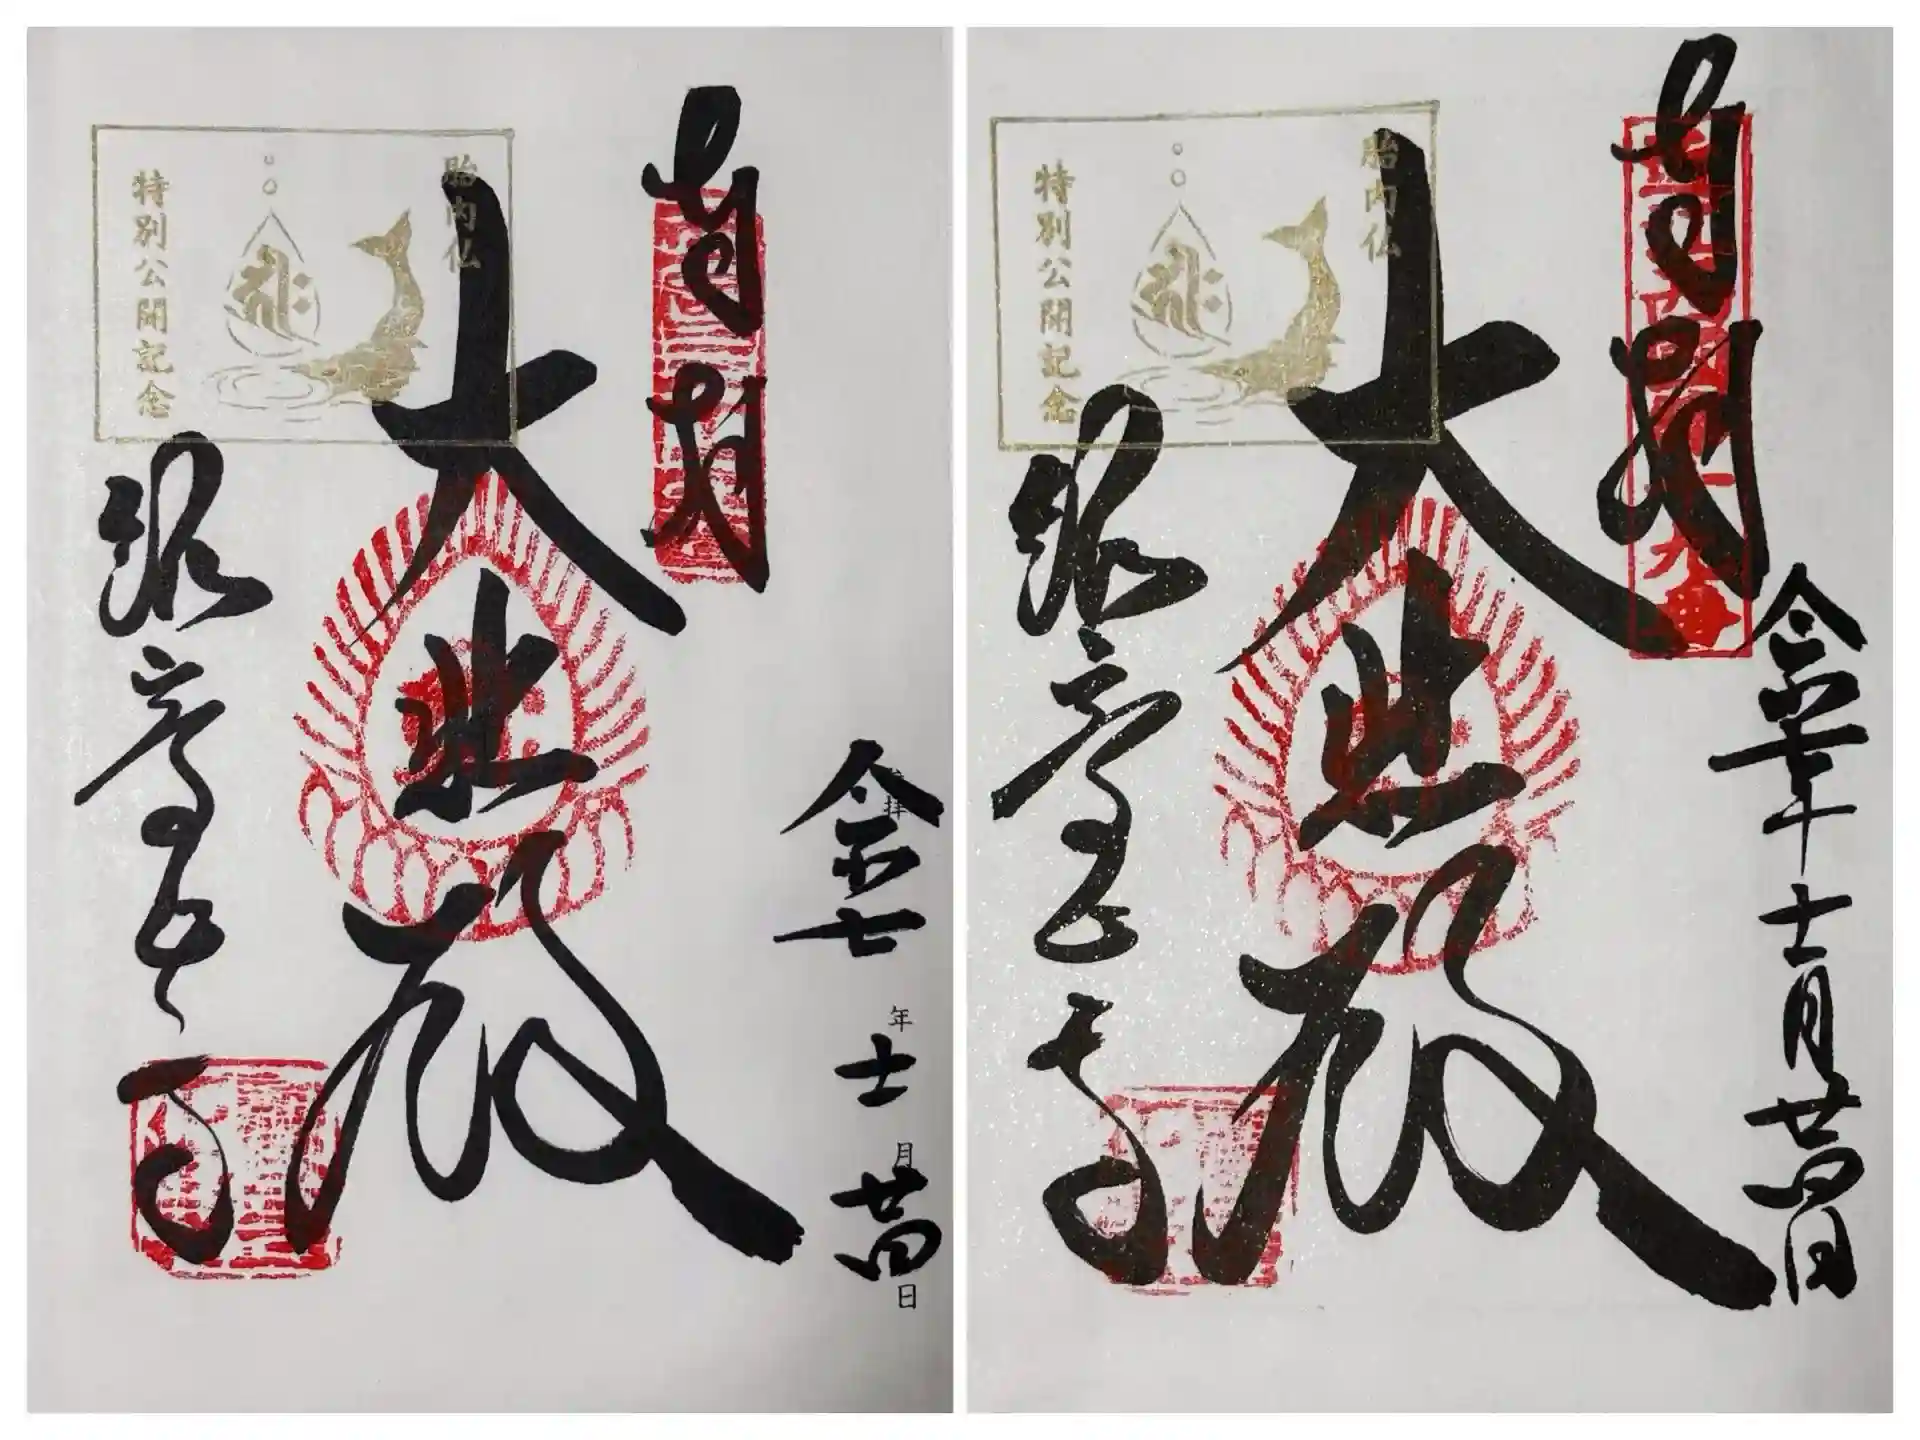 奉拝
胎内仏
特別公開記念
大悲殿
観音正寺
令和七年十一月廿四日
奉拝
胎内仏
特別公開記念
大悲殿
観音正寺
令和七年十一月廿四日